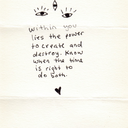 Within you
lies the power
to create and
destroy. Know
when the time
is right to
do both.